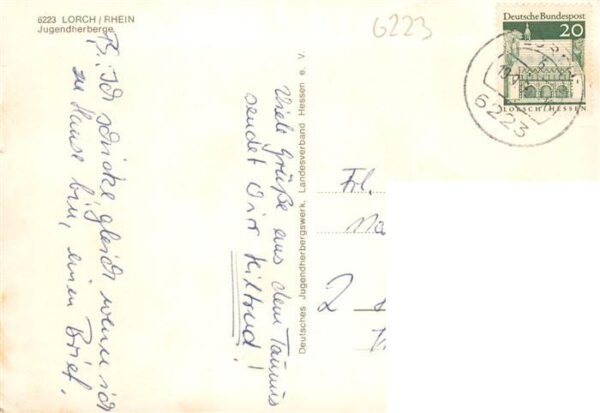 6223 LORCH / RHEIN
Jugendherberge
6223
Deutsche Bundespost
20
LORSCH/HESSEN
6223
Viele Grüße aus dem Taunus
sendet Dir Hiltrud!
Ich schicke gleich wenn ich
zu Hause bin, einen Brief.
Deutsches Jugendherbergswerk, Landesverband Hessen e. V.
Frl.
2